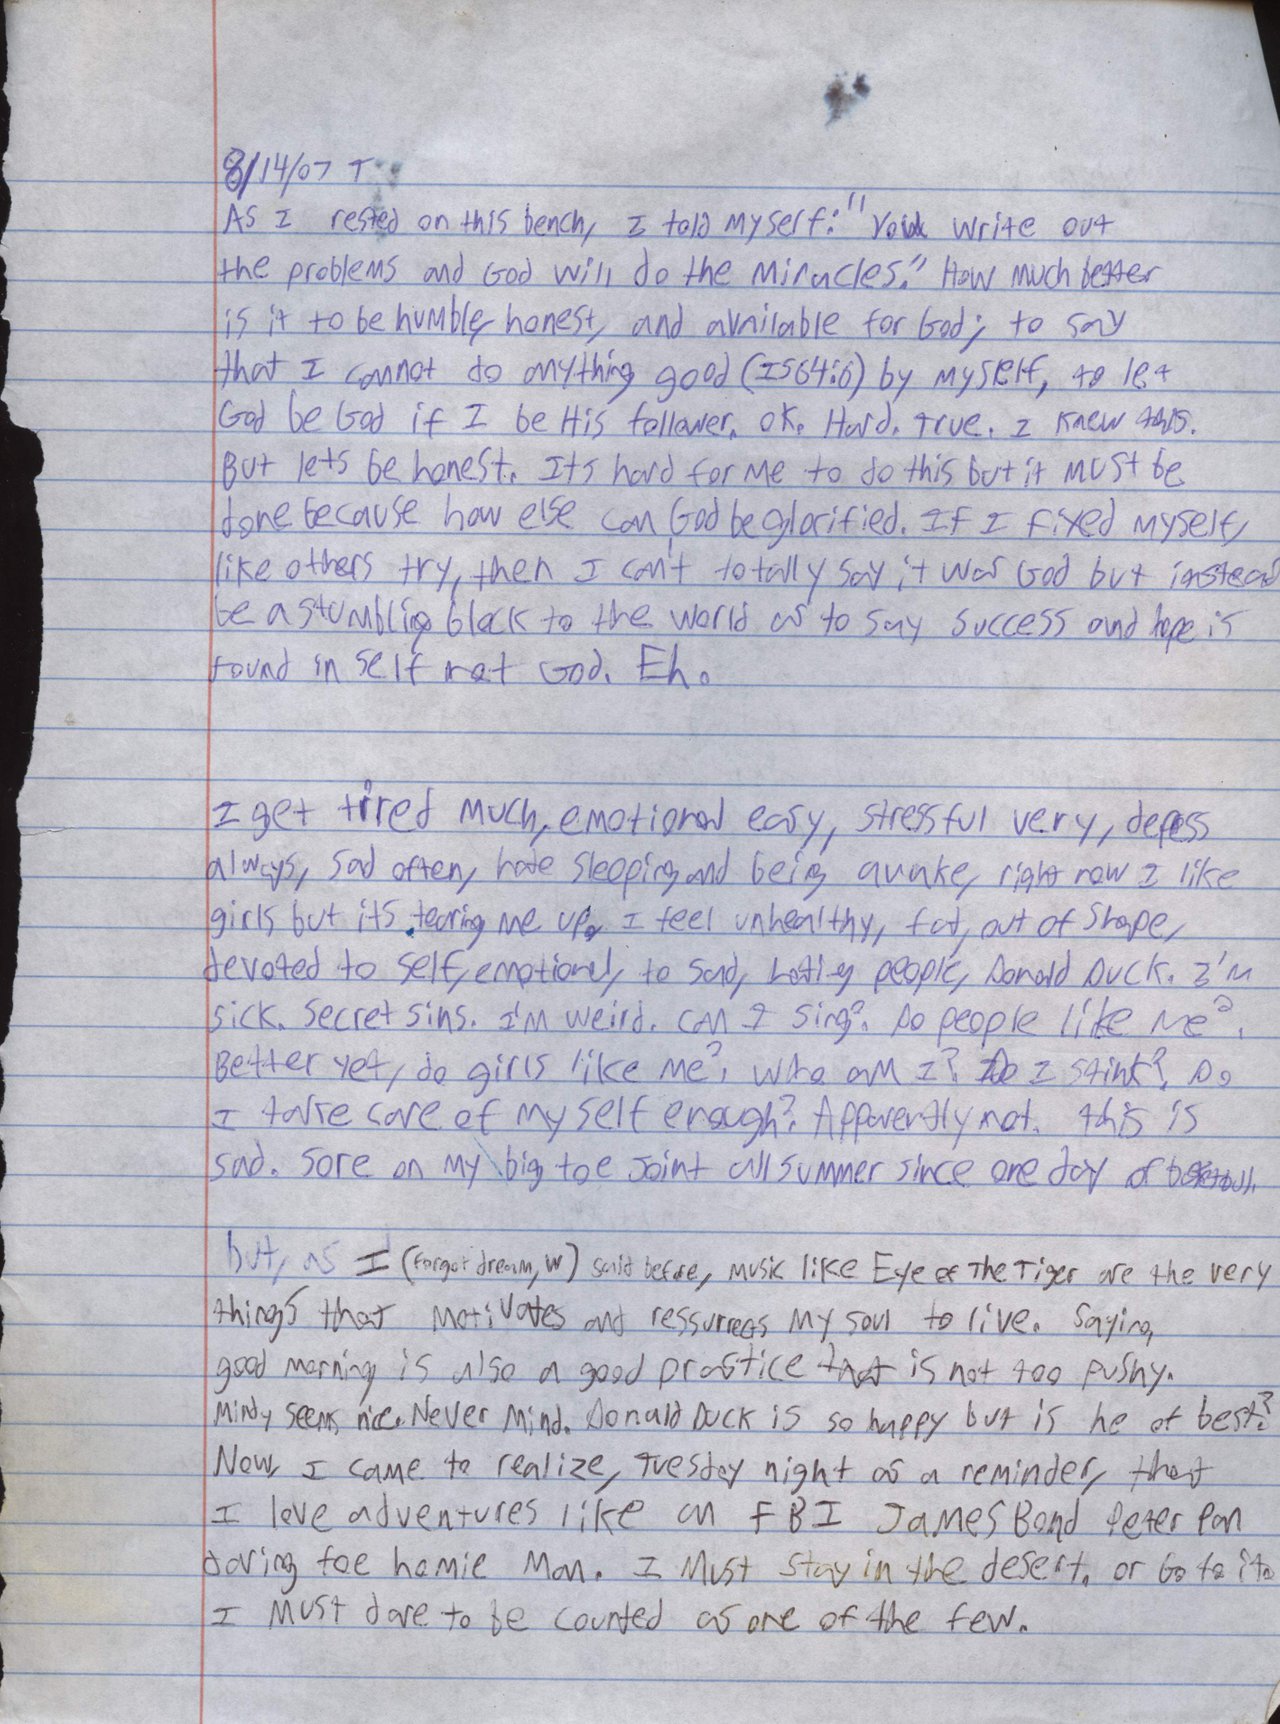 8/14/07 T
As I rested on this bench, I told myself: "You write out
the problems and God will do the miracles." How much better
is it to be humble, honest, and available for God; to say
that I cannot do anything good (IS64:6) by myself, to let
God be God if I be His follower. OK. Hard. True. I knew this.
But lets be honest. Its hard for me to do this but it must be
done because how else can God be glorified. If I fixed myself,
like others try, then I can't totally say it was God but instead
be a stumbling block to the world as to say success and hope is
found in self not God. Eh.
I get tired much, emotional easy, stressful very, depress
always, sad often, hate sleeping and being awake, right now I like
girls but its tearing me up. I feel unhealthy, fat, out of shape,
devoted to self, emotional, to sad, hating people, Donald Duck. I'm
sick. Secret sins. I'm weird. Can I sing? Do people like me?
Better yet, do girls like me? Who am I? Do I stink? Do
I take care of my self enough? Apparently not. this is
sad. Sore on my big toe joint all summer since one day of
but, as I (forgot dream, w) said before, music like Eye of The Tiger are the very
things that motivates and ressurrects my soul to live. Saying
good morning is also a good practice that is not too pushy.
Mindy seems nice. Never mind. Donald Duck is so happy but is he at best?
Now, I came to realize, Tuesday night as a reminder, that
I love adventures like an FBI James Bond Peter Pan
daring foe homie man. I must stay in the desert. or Go to it.
I must dare to be counted as one of the few.